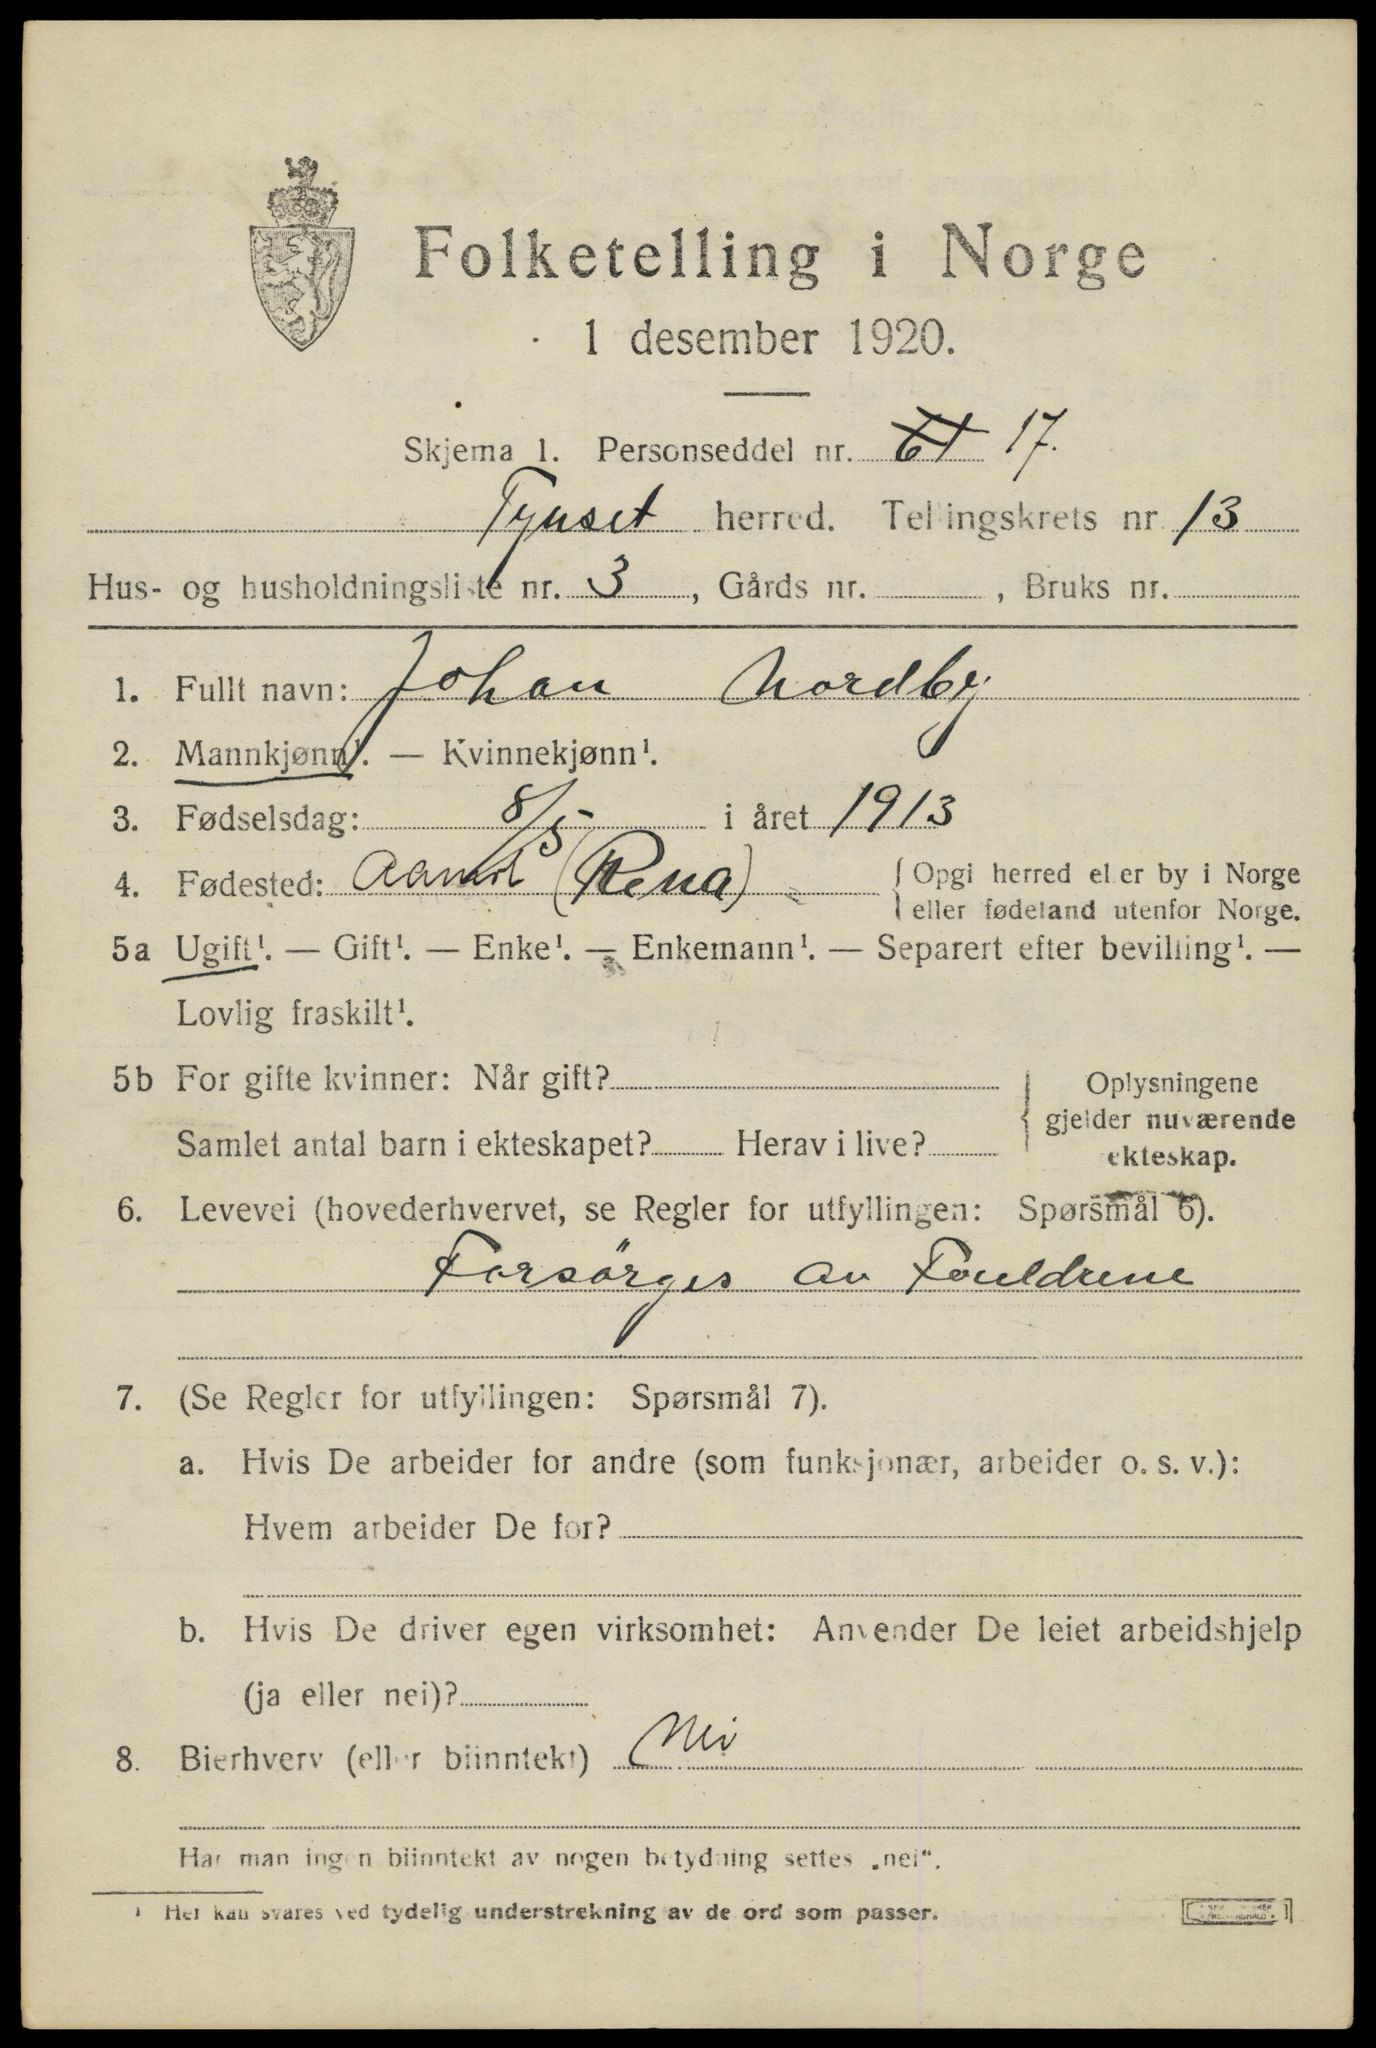 Folketelling i Norge
1 desember 1920.
Skjema 1. Personseddel nr. 17.
Tynset herred. Tellingskrets nr 13
Hus- og husholdningsliste nr. 3, Gårds nr. , Bruks nr.
1. Fullt navn: Johan Nordby
2. Mannkjønn¹. — Kvinnekjønn¹.
3. Fødselsdag: 8/5 i året 1913
4. Fødested: Aamot (Rena) { Opgi herred eller by i Norge
eller fødeland utenfor Norge.
5a Ugift¹. — Gift¹. — Enke¹. — Enkemann¹. — Separert efter bevilling¹. —
Lovlig fraskilt¹.
5b For gifte kvinner: Når gift?
Samlet antal barn i ekteskapet? Herav i live?
{ Oplysningene
gjelder nuværende
ekteskap.
6. Levevei (hovederhvervet, se Regler for utfyllingen: Spørsmål 6).
Forsörges av Foreldrene
7. (Se Regler for utfyllingen: Spørsmål 7).
a. Hvis De arbeider for andre (som funksjonær, arbeider o. s. v.):
Hvem arbeider De for?
b. Hvis De driver egen virksomhet: Anvender De leiet arbeidshjelp
(ja eller nei)?
8. Bierhverv (eller biinntekt) Nei
Har man ingen biinntekt av nogen betydning settes „nei“.
¹ Her kan svares ved tydelig understrekning av de ord som passer.